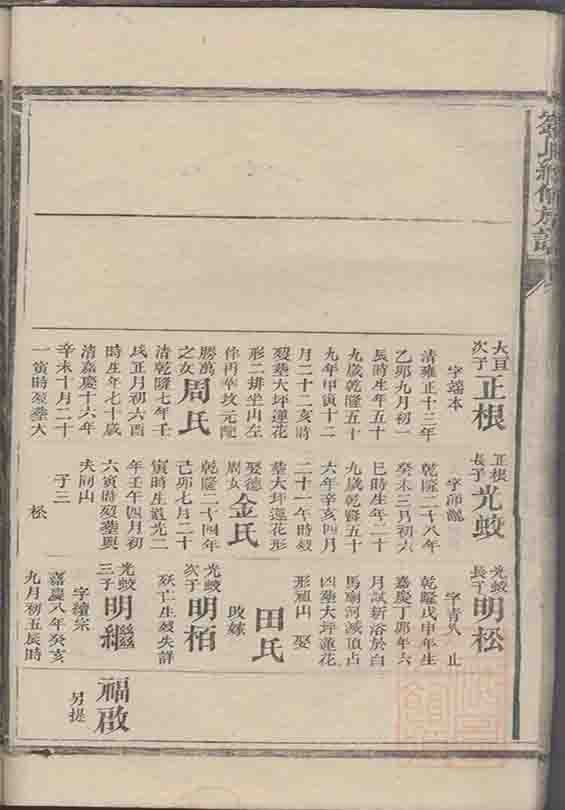 氏續修族譜
大亘次子正根
字端本
清雍正十三年
乙卯九月初一
辰時生年五十
九歲乾隆五十
九年甲寅十二
月二十二亥時
歿塟大坪蓮花
形二排坐山左
伴丙伞坟元配
勝萬之女周氏
清乾隆七年壬
戌正月初六酉
時生年七十歲
清嘉慶十六年
辛未十月二十
一寅時歿塟大
正根長子光蛟
字師龍
乾隆二十八年
癸未三月初六
巳時生年二十
九歲乾隆五十
六年辛亥四月
二十一年時歿
塟大坪蓮花形
娶德周女金氏
乾隆二十四年
己卯七月二十
寅時生道光二
年壬午四月初
六寅時歿塟與
夫同山
子三
松
光蛟長子明松
字青 止
乾隆戊申年生
嘉慶丁卯年六
月試新浴於白
馬廟河滅頂占
凶塟大坪蓮花
形祖山 娶
田氏
改嫁
光蛟次子明栢
殀亡生歿失詳
光蛟三子明繼
字續宗
嘉慶八年癸亥
九月初五辰時
福啟
另提